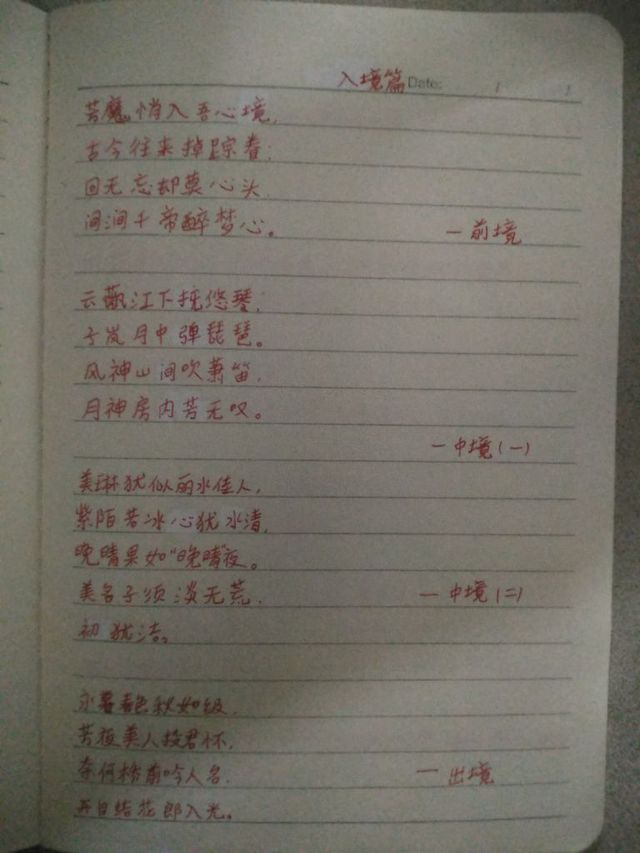 入境篇 Date:
苦魔悄入吾心境,
古今往来掉踪眷;
回无忘却莫心头,
间涧千帝醉梦心。
—前境
云 江下抚悠琴;
子岚月中弹琵琶。
风神山间吹萧笛,
月神房内苦无叹。
—中境(一)
美琳犹似丽水佳人,
紫陌苦冰心犹水清,
晚晴果如"晚晴"夜。
美名子须淡无荒,
—中境(二)
初犹洁。
秋如级,
美人投君怀,
奈何桥前吟人名,
—出境
日结花郎入光。